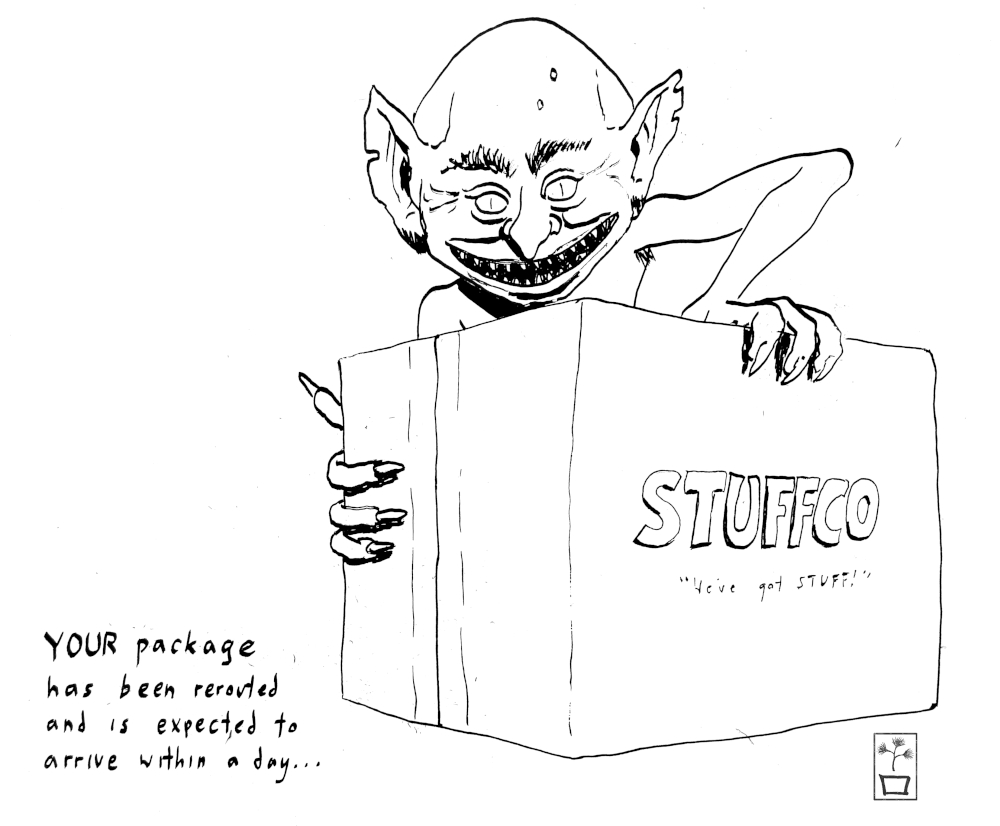 STUFFCO
"We've got STUFF!"
YOUR package
has been rerouted
and is expected to
arrive within a day...